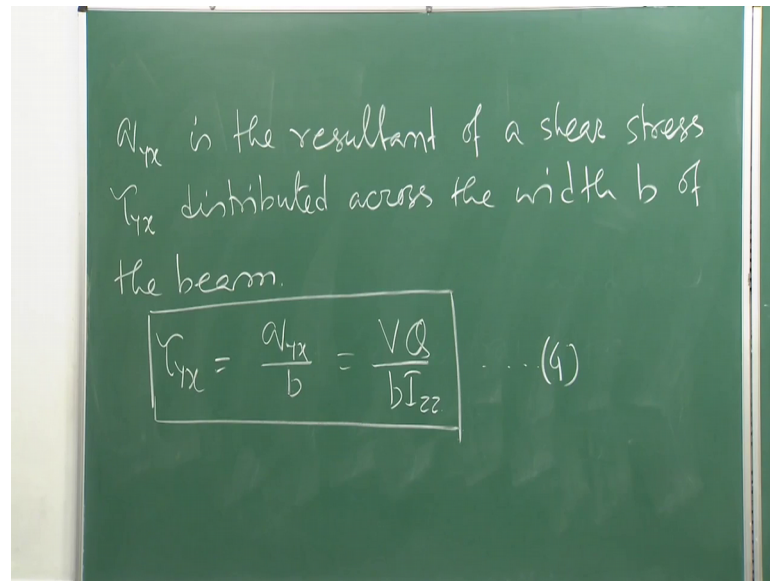 q_yx is the resultant of a shear stress
τ_yx distributed across the width b of
the beam.
τ_yx = q_yx / b = VQ / bI_zz ....(4)